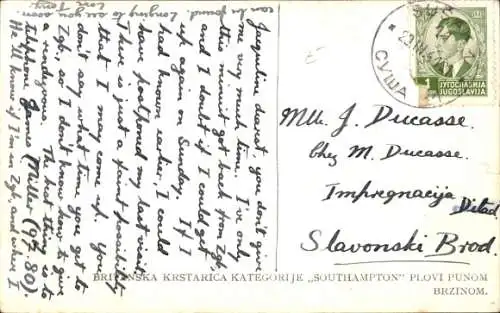 Jacqueline dearest you don't give
me very much time. I've only
this minute got back from Zgb,
and I doubt if I could get
up again on Sunday. If I
had known earlier, I could
have postponed my last visit.
There is just a faint possibility
that I may come up. You
don't say what time you get to
Zgb, so I don't know how to give
a rendezvous. The best thing is to
telephone James Miller (97.80).
He'll know if I'm in Zgb, and where I
can be found. Longing to see you soon.
СУША
1
ЈУГОСЛАВИЈА
JUGOSLAVIJA
Mlle J. Ducasse.
Chez M. Ducasse.
Impregnacija
Slavonski Brod.
BRITANSKA KRSTARICA KATEGORIJE „SOUTHAMPTON" PLOVI PUNOM
BRZINOM.